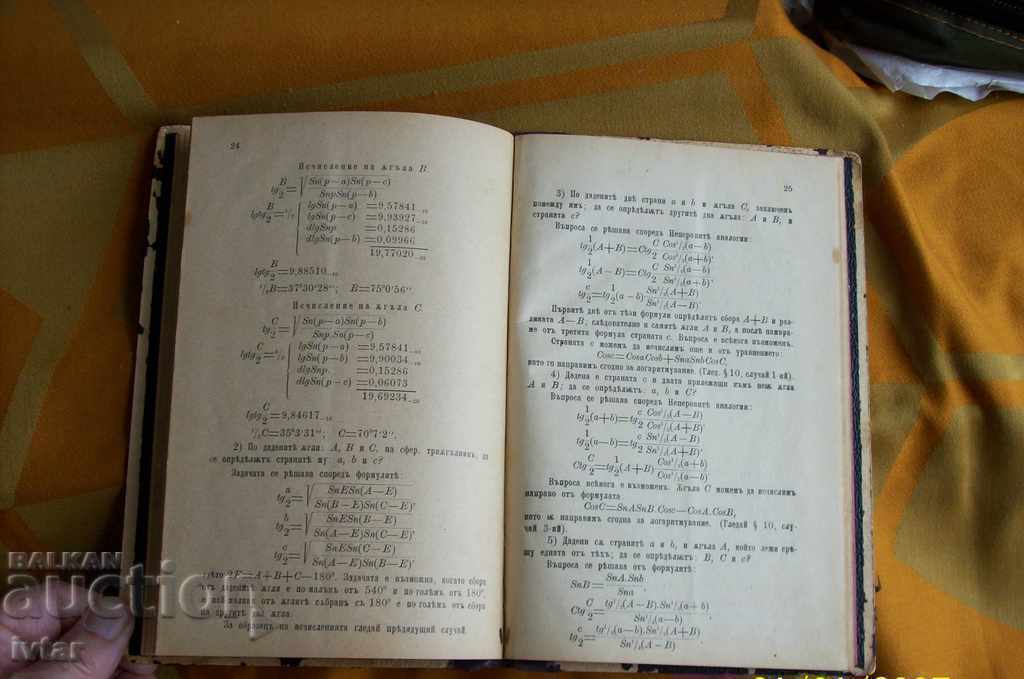 24
Исчисление на ѫгъла B
tg B/2 = √ Sn(p—a)Sn(p—c) / SnpSn(p—b)
lgtg B/2 = ¹/₂
lgSn(p—a) =9,57841₋₁₀
lgSn(p—c) =9,93927₋₁₀
dlgSnp =0,15286
dlgSn(p—b) =0,09966
19,77020₋₂₀
lgtg B/2 =9,88510₋₁₀
¹/₂B=37°30'28"; B=75°0'56".
Исчисление на ѫгъла C
tg C/2 = √ Sn(p—a)Sn(p—b) / Snp.Sn(p—c)
lgtg C/2 = ¹/₂
lgSn(p—a) =9,57841₋₁₀
lgSn(p—b) =9,90034₋₁₀
dlgSnp. =0,15286
dlgSn(p—c) =0,06073
19,69234₋₂₀
lgtg C/2 =9,84617₋₁₀
¹/₂C=35°3'31"; C=70°7'2",
2) По дадените ѫгли: A, B и C, на сфер. триѫгълник, да
се опредѣлѭтъ странитѣ му: a, b и c?
Задачата се рѣшава споредъ формулитѣ:
tg a/2 = √ SnESn(A—E) / Sn(B—E)Sn(C—E)'
tg b/2 = √ SnESn(B—E) / Sn(A—E)Sn(C—E)'
tg c/2 = √ SnESn(C—E) / Sn(A—E)Sn(B—E)'
гдѣто 2E=A+B+C—180°. Задачата е възможна, когато сбора
отъ дадените ѫгли е по-малъкъ отъ 540° и по-голѣмъ отъ 180°,
и най малкия отъ ѫглитѣ събранъ съ 180° е по-голѣмъ от сбора
на другитѣ два ѫгла.
За образецъ на исчисленията гледай прѣдидущий случай.
25
3) По дадените двѣ страни a и b и ѫгъла C, заключенъ
помежду имъ; да се опредѣлѭтъ другитѣ два ѫгла: A и B, и
страната c?
Въпроса се рѣшава споредъ Неперовитѣ аналогии:
tg 1/2 (A+B)=Ctg C/2 Cos¹/₂(a—b) / Cos¹/₂(a+b)'
tg 1/2 (A—B)=Ctg C/2 Sn¹/₂(a—b) / Sn¹/₂(a+b)'
tg c/2 =tg 1/2 (a—b) Sn¹/₂(A+B) / Sn¹/₂(A—B)'
Първитѣ двѣ отъ тѣзи формули опредѣлятъ сбора A+B и раз-
ликата A—B, следователно и самитѣ ѫгли A и B, а послѣ намира-
ме отъ третита формула страната c. Въпроса е всѣкога възможенъ.
Страната c можемъ да исчислимъ още и отъ уравнението:
Cosc=CosaCosb+SnaSnbCosC,
което го направимъ сгодно за логаритмувание. (Глед. § 10, случай 1-ий).
4) Дадена е страната c и двата прилежащи къмъ неѭ ѫгли
A и B; да се опредѣлѭтъ: a, b и C?
Въпроса се рѣшава споредъ Неперовитѣ аналогии:
tg 1/2 (a+b)=tg c/2 Cos¹/₂(A—B) / Cos¹/₂(A+B)'
tg 1/2 (a—b)=tg c/2 Sn¹/₂(A—B) / Sn¹/₂(A+B)'
Ctg C/2 =tg 1/2 (A+B) Cos¹/₂(a+b) / Cos¹/₂(a—b)
Въпроса всѣкога е възможенъ. Ѫгъла C можемъ да исчислимъ
направо отъ формулата
CosC=SnASnB.Cosc—CosA.CosB,
които ѭ направимъ сгодна за логаритмувание. (Гледай § 10, слу-
чай 3-ий).
5) Дадени сѫ странитѣ a и b, и ѫгъла A, който лежи срѣ-
щу едната отъ тѣхъ; да се опредѣлѭтъ: B, C и c?
Въпроса се рѣшава отъ формулитѣ:
SnB= SnA.Snb / Sna '
Ctg C/2 = tg¹/₂(A—B).Sn¹/₂(a+b) / Sn¹/₂(a—b)
tg c/2 = tg¹/₂(a—b).Sn¹/₂(A+B) / Sn¹/₂(A—B)
BALKAN
auction
ivtar